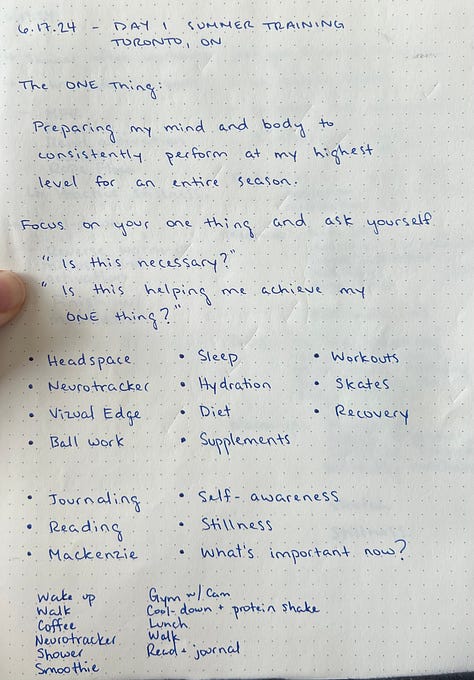 6.17.24 - DAY 1 SUMMER TRAINING
TORONTO, ON
The ONE Thing:
Preparing my mind and body to
consistently perform at my highest
level for an entire season.
Focus on your one thing and ask yourself
"Is this necessary?"
"Is this helping me achieve my
ONE thing?"
• Headspace
• Neurotracker
• Vizual Edge
• Ball work
• Sleep
• Hydration
• Diet
• Supplements
• Workouts
• Skates
• Recovery
• Journaling
• Reading
• Mackenzie
• Self-awareness
• Stillness
• What's important now?
Wake up
Walk
Coffee
Neurotracker
Shower
Smoothie
Gym w/ Cam
Cool-down + protein shake
Lunch
Walk
Read + journal